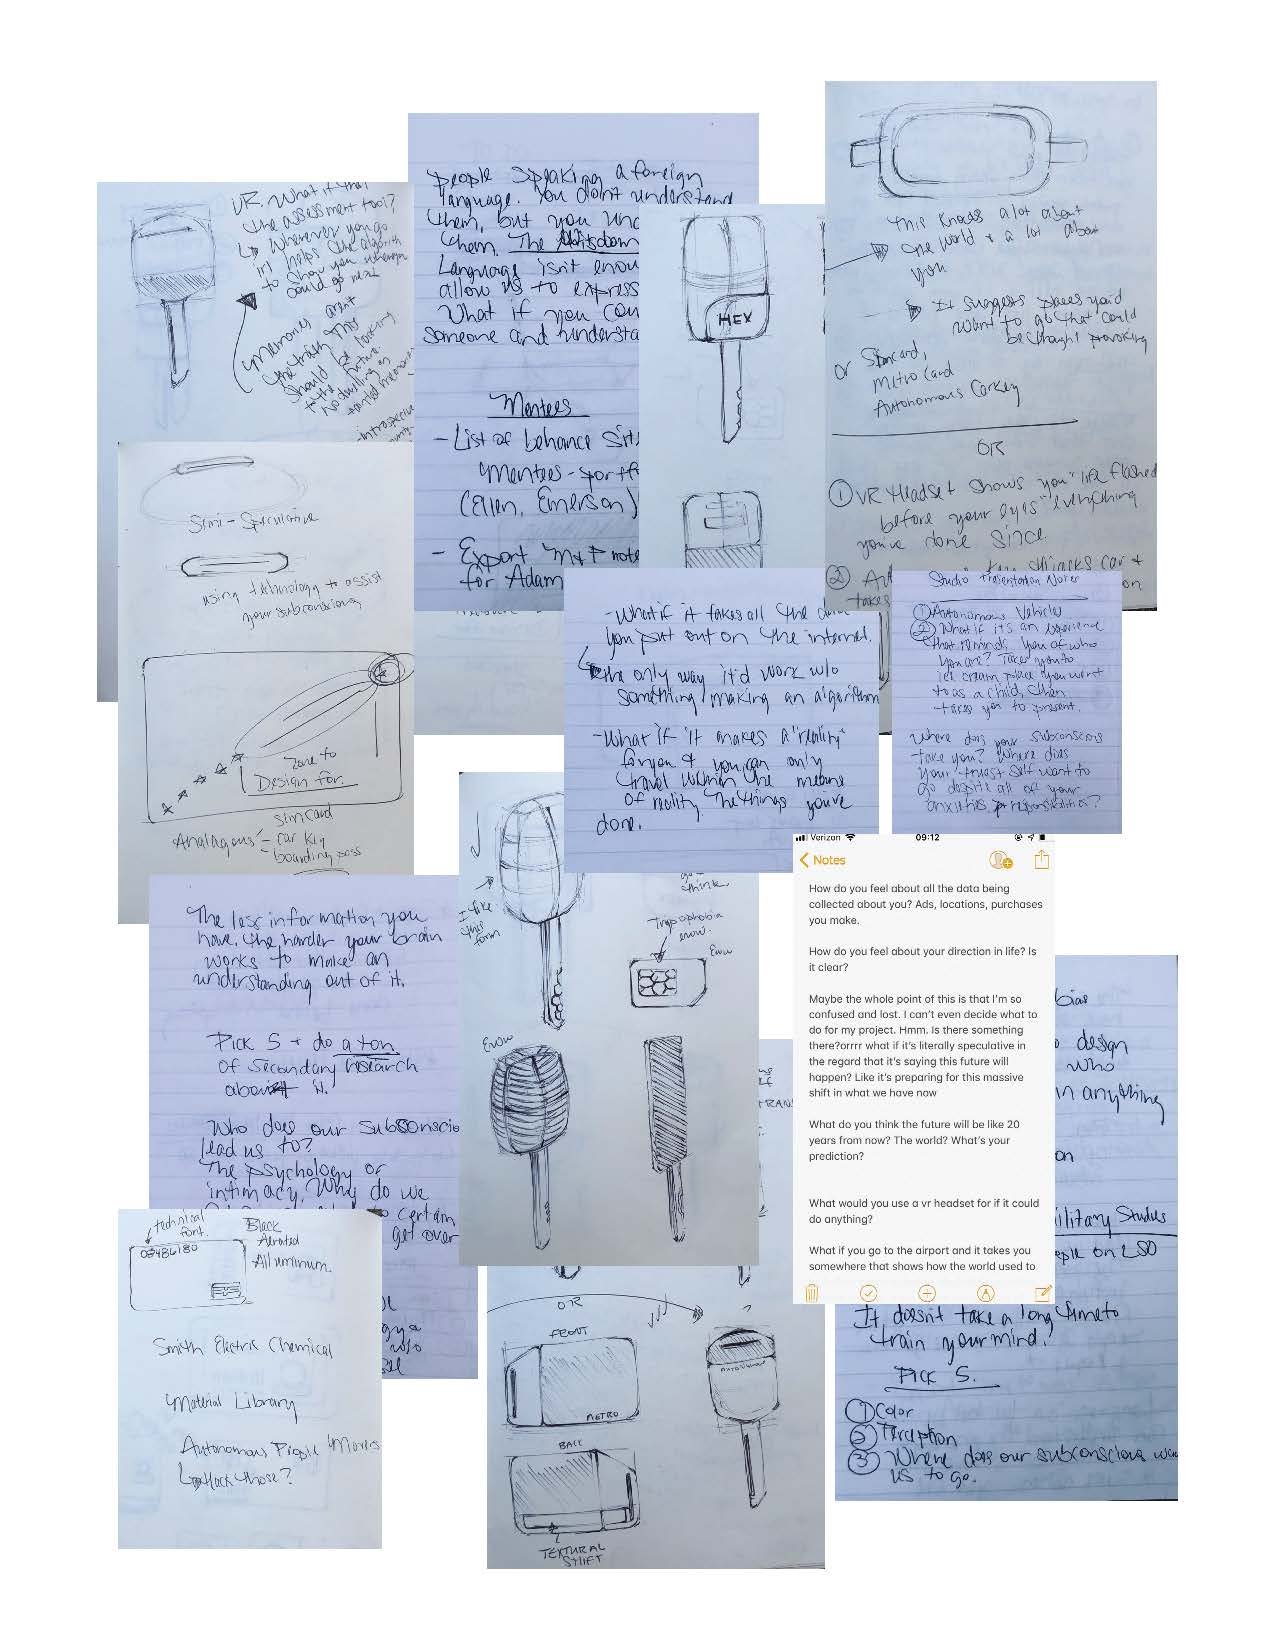 VR. What if that
the assessment tool?
↳ Wherever you go
in helps the algorith
to show you where you
could go next
Memories arent
the truth. This
should be looking
to the future.
No dwelling on
People speaking a foreign
language. You don't understand
them, but you und
them. The
Language isn't enou
allow us to express
What if you cou
someone and understa
Mentees
- List of behance sit
Mentees -
(Ellen, Emerson)
- Export note
for Adam
HEX
This knows a lot about
the world & a lot about
you
It suggests places you'd
want to go that could
be thought provoking
or Simcard,
Metro Card
Autonomous Carkey
OR
① VR Headset shows you "life flashed
before your eyes" everything
you've done since
②
takes
Semi-Speculative
using technology to assist
your subconscious
Zone to
Design for
Analogous - simcard
- car key
- boarding pass
-What if it takes all the
you put out on the internet.
↳ the only way it'd work w/o
something making an algorithm
-What if it makes a "reality"
for you & you can only
travel within the means
of reality. The things you've
done.
Studio Presentation Notes
① Autonomous Vehicle
② What if its an experience
that reminds you of who
you are? Takes you to
ice cream place you went
to as a child, then
takes you to present.
Where does your subconscious
take you? Where does
your truest self want to
go despite all of your
anxieties & responsibilities?
The less information you
have, the harder your brain
works to make an
understanding out of it.
Pick 5 + do a ton
of secondary research
about it.
Who does our subconscio
lead us to?
The psychology of
intimacy. Why do we
to certain
get over
I like
this
form
think.
Trypophobia
enow.
Eww
Enow
Verizon
09:12
Notes
How do you feel about all the data being
collected about you? Ads, locations, purchases
you make.
How do you feel about your direction in life? Is
it clear?
Maybe the whole point of this is that I'm so
confused and lost. I can't even decide what to
do for my project. Hmm. Is there something
there?orrrr what if it's literally speculative in
the regard that it's saying this future will
happen? Like it's preparing for this massive
shift in what we have now
What do you think the future will be like 20
years from now? The world? What's your
prediction?
What would you use a vr headset for if it could
do anything?
What if you go to the airport and it takes you
somewhere that shows how the world used to
bias
design
who
in anything
on
ilitary Studies
ople on LSD
It doesn't take a long time to
train your mind?
PICK 5.
① Color
② Perception
③ Where does our subconscious wan
us to go.
technical
font.
Black
Aerated
Alluminum.
Smith Electric Chemical
Material Library
Autonomous People Movers
↳ Hack those?
OR
FRONT
METRO
BACK
TEXTURAL
SHIFT